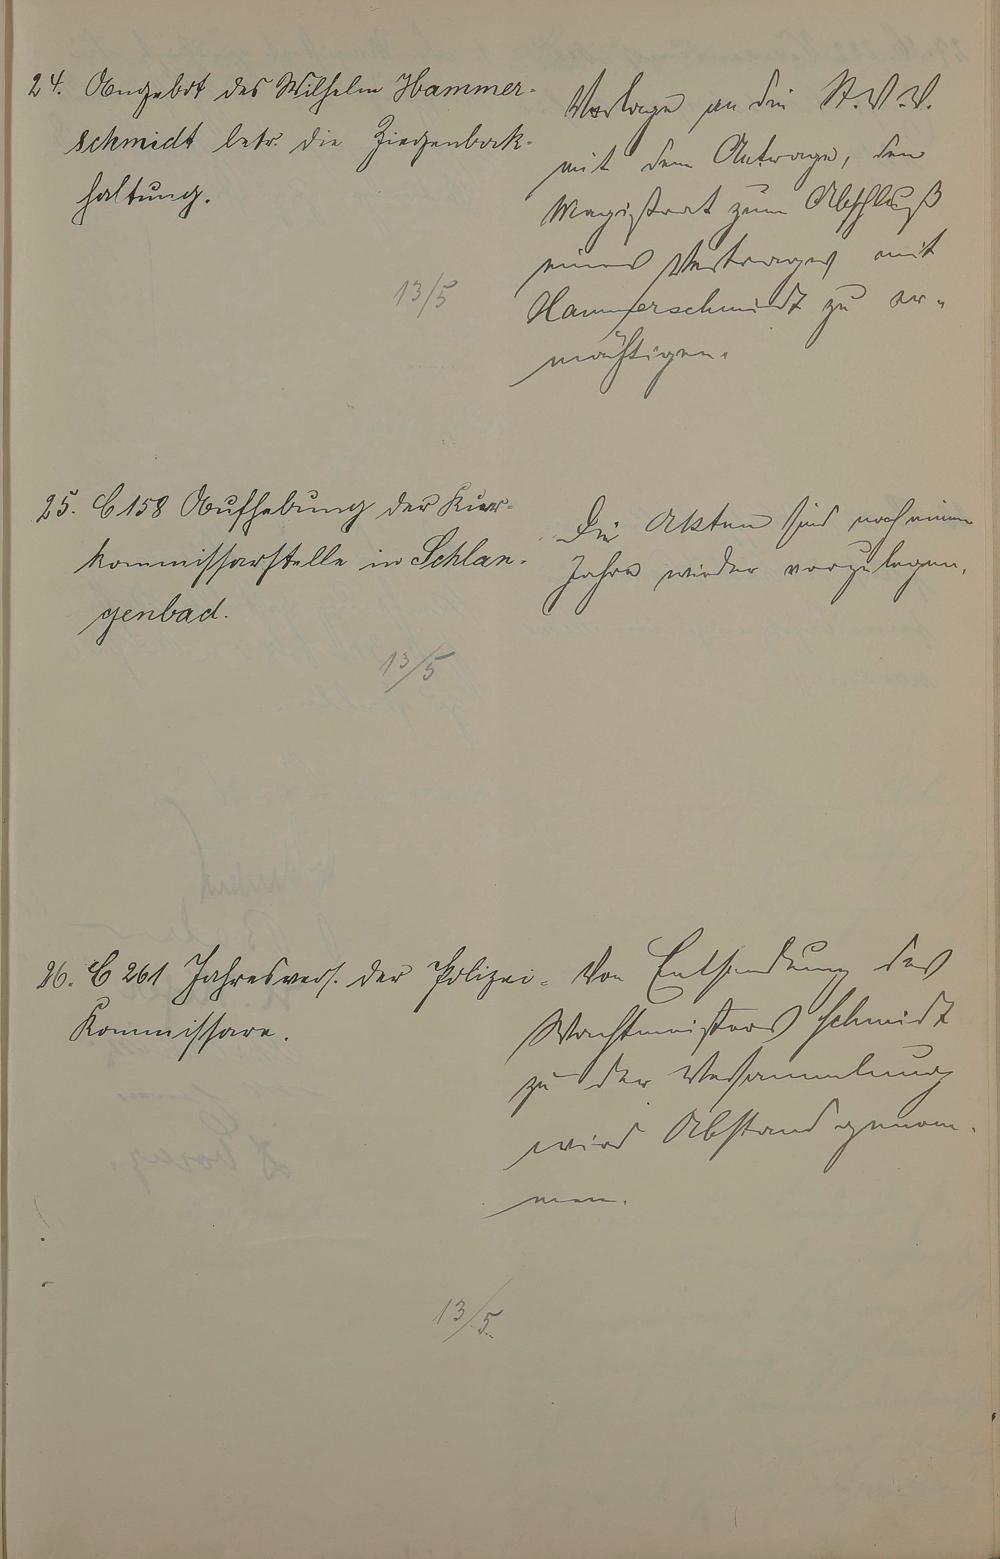 24. Angebot des Wilhelm Hammer-
schmidt betr. die Ziegenbock-
haltung.
13/5
Vorlage an die St.V.V.
mit dem Antrage, den
Magistrat zum Abschluß
eines Vertrages mit
Hammerschmidt zu er-
mächtigen.
25. C 158 Aufhebung der Kur-
kommissarstelle in Schlan-
genbad.
13/5
Die Akten sind nach einem
Jahre wieder vorzulegen.
26. C 261 Jahresvers. der Polizei-
Kommissare.
Von Entsendung des
Wachtmeisters Schmidt
zu der Versammlung
wird Abstand genom-
men.
13/5.